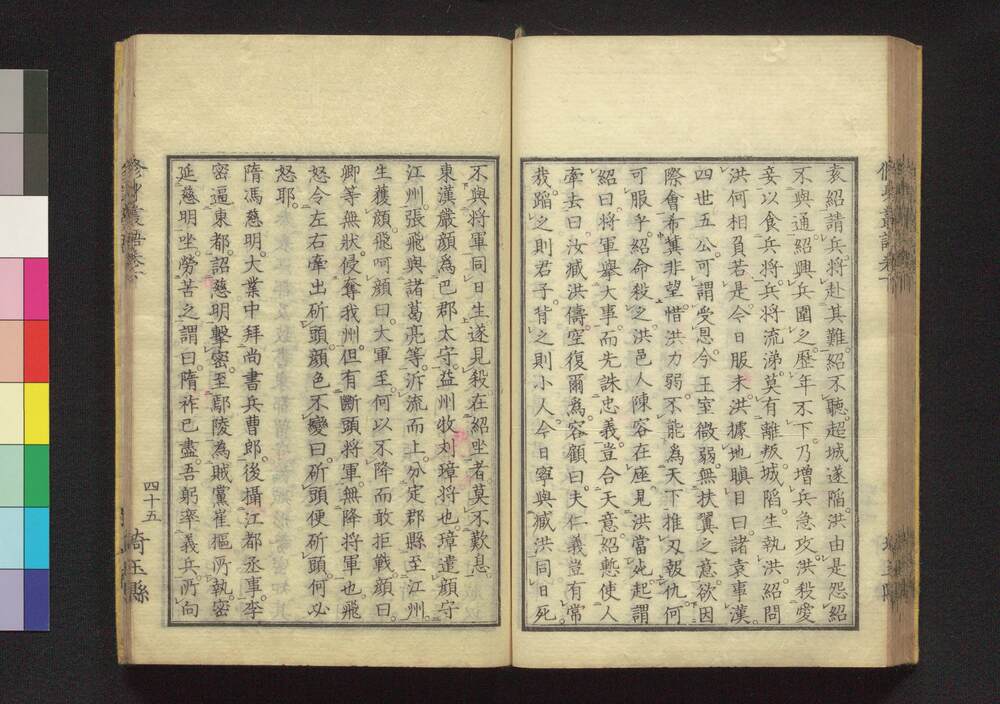 袁紹請兵將赴其難紹不聽超城遂陷洪由是怨紹
不與通紹興兵圍之歷年不下乃增兵急攻洪殺愛
妾以食兵將兵將流涕莫有離叛城陷生執洪紹問
洪何相負若是今日服未洪據地瞋目曰諸袁事漢
四世五公可謂受恩今王室微弱無扶翼之意欲因
際會希冀非望惜洪力弱不能為天下推刃報仇何
可服乎紹命殺之洪邑人陳容在座見洪當死起謂
紹曰將軍舉大事而先誅忠義豈合天意紹慙使人
牽去曰汝臧洪儔空復爾為容顧曰夫仁義豈有常
哉蹈之則君子背之則小人今日寧與臧洪同日死
不與將軍同日生遂見殺在紹坐者莫不歎息
東漢嚴顔為巴郡太守益州牧刘璋將也璋遣顔守
江州張飛與諸葛亮等泝流而上分定郡縣至江州
生獲顔飛呵顔曰大軍至何以不降而敢拒戰顔曰
卿等無狀侵奪我州但有斷頭將軍無降將軍也飛
怒令左右牽出斫頭顔色不變曰斫頭便斫頭何必
怒耶
隋馮慈明大業中拜尚書兵曹郎後攝江都丞事李
密逼東都詔慈明擊密至鄢陵為賊黨崔樞所執密
延慈明坐勞苦之謂曰隋祚已盡吾躬率義兵所向
四十五
埼玉縣